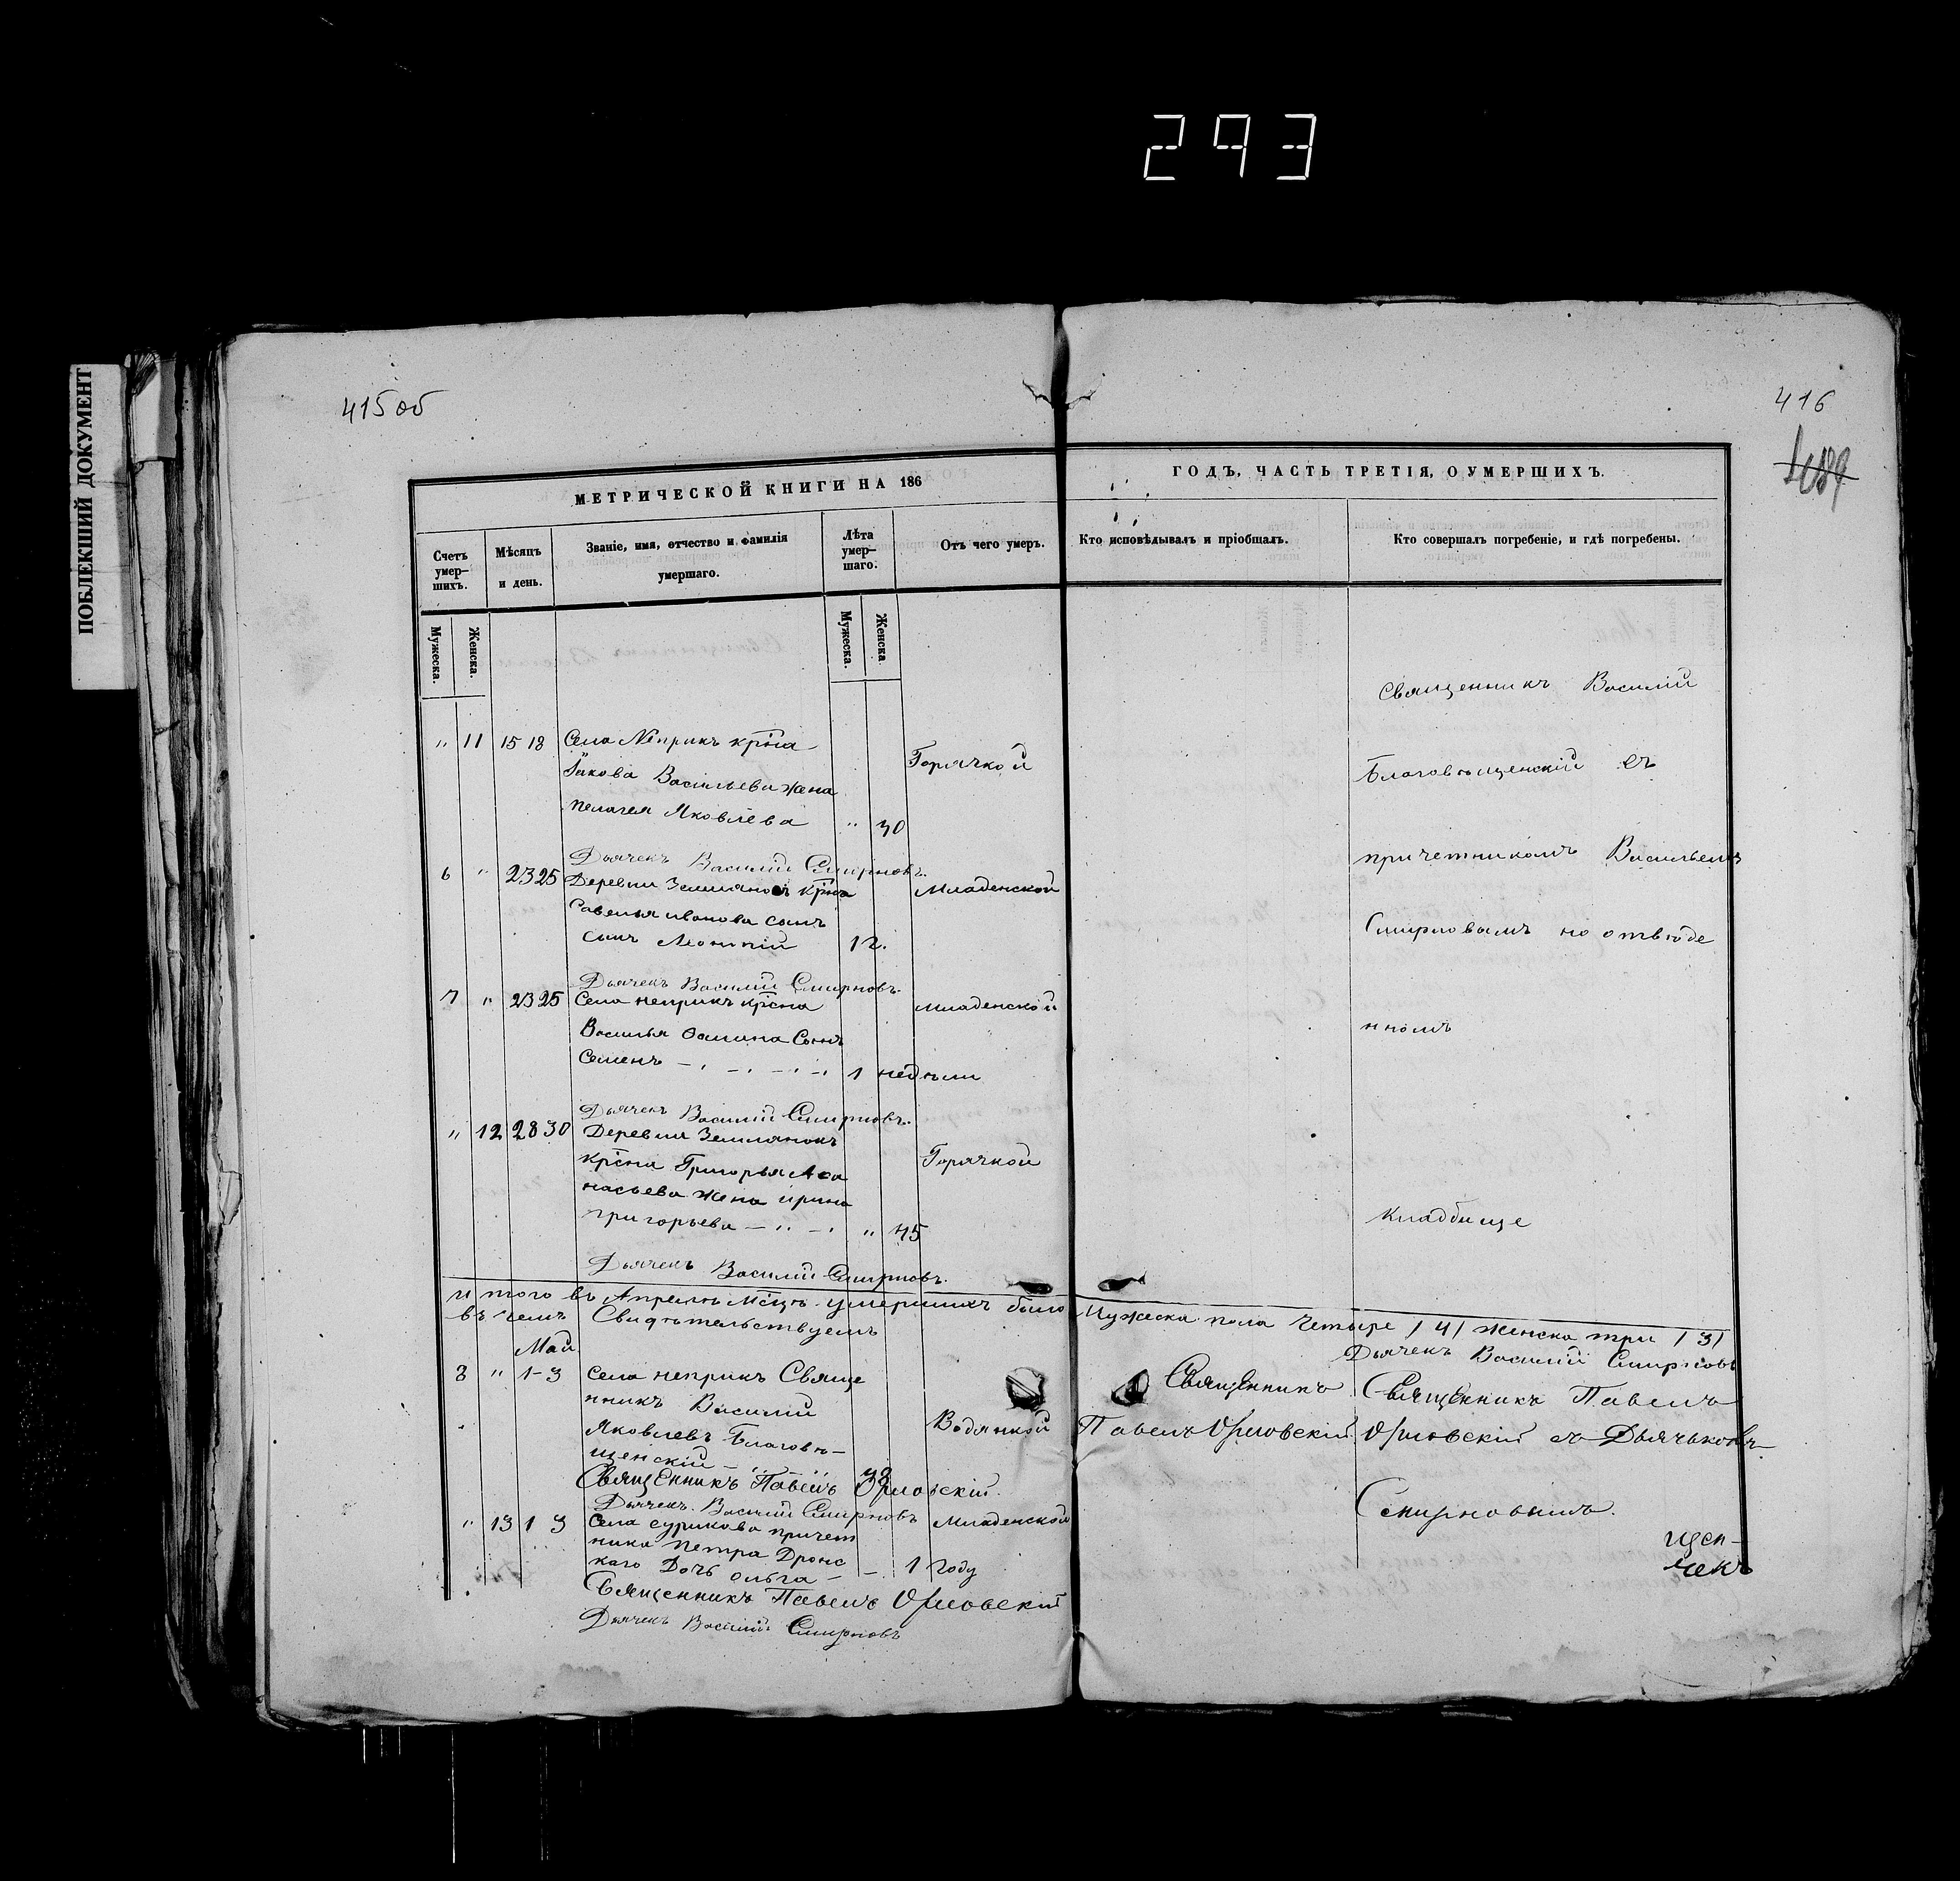 293
ПОБЛЕКШИЙ ДОКУМЕНТ
415 об
416
МЕТРИЧЕСКОЙ КНИГИ НА 186
ГОДЪ, ЧАСТЬ ТРЕТІЯ, О УМЕРШИХЪ.
Счетъ умер–шихъ.
Мѣсяцъ и день.
Званіе, имя, отчество и фамилія умершаго.
Лѣта умер–шаго.
Отъ чего умеръ.
Кто исповѣдывалъ и пріобщалъ.
Кто совершалъ погребеніе, и гдѣ погребены.
Мужеска.
Женска.
Мужеска.
Женска.
" 11 15 18 Села Неприкъ крїна
Іакова Васильева жена
пелагея Яковлева " 30
Горячкой
Дьячекъ Василій Смирновъ.
6 " 23 25 Деревни Землянокъ крїна
Савелья иванова сынъ
сынъ Леонтій 1 г.
Младенской
Дьячекъ Василій Смирновъ.
7 " 23 25 Села неприкъ крїсна
Василья Фомина Сынъ
Семенъ 1 недѣли
младенской
Дьячекъ Василій Смирновъ.
" 12 28 30 Деревни Землянокъ
крїсна Григорья Афа
насьева жена ирина
григорьева " 45
Горячкой
Дьячекъ Василій Смирновъ.
Священникъ Василій
Благовѣщенскій съ
причетникомъ Васильемъ
Смирновымъ на отвѣде
нномъ
Кладбище
Итого въ Апрелѣ Мсцѣ умершихъ было Мужеска пола Четыре /4/ женска три /3/
въ чемъ Свидѣтельствуемъ
Дьячекъ Василій Смирновъ
Май
8 " 1-3 Села неприкъ Свяще
нникъ Василий
Яковлевъ Благовѣ–
щенскій 38
Водянкой
Священникъ
Павелъ Орловскій
Священникъ Павелъ
Орловскій съ Дьячькомъ
Смирновымъ.
Священникъ Павелъ Орловскій.
Дьячекъ Василій Смирновъ
" 13 1 3 Села сурикова причет
ника петра Дронс
каго Дочь ольга – – 1 году
Младенской
Священникъ Павелъ Орловскій
Дьячекъ Василій Смирновъ
щен–
чекъ